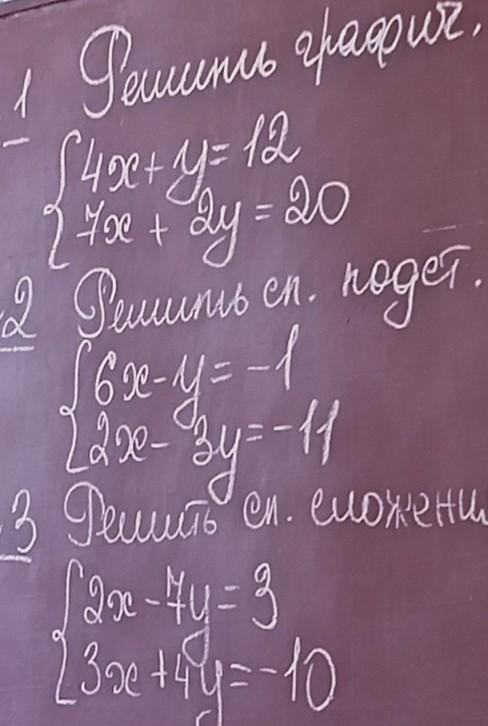 1 Решить графич.
4x+y=12
7x + 2y=20
2 Решить сп. подст.
6x-y=-1
2x-3y=-11
3 Решить сп. сложени
2x-7y=3
3x+4y=-10